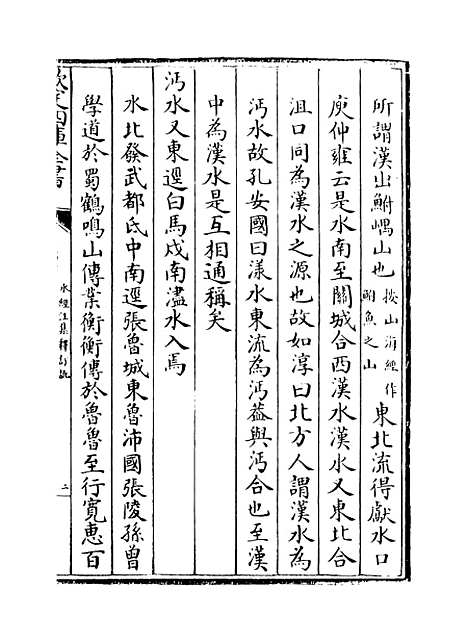 所謂漢出鮒嵎山也按山海經作鮒魚之山東北流得獻水口
庾仲雍云是水南至關城合西漢水漢水又東北合
沮口同為漢水之源也故如淳曰北方人謂漢水為
沔水故孔安國曰漾水東流為沔葢與沔合也至漢
中為漢水是互相通稱矣
沔水又東逕白馬戍南濜水入焉
水北發武都氐中南逕張魯城東魯沛國張陵孫曾
學道於蜀鶴鳴山傳業衡衡傳於魯魯至行寛惠百
欽定四庫全書
水經注集釋訂訛
二